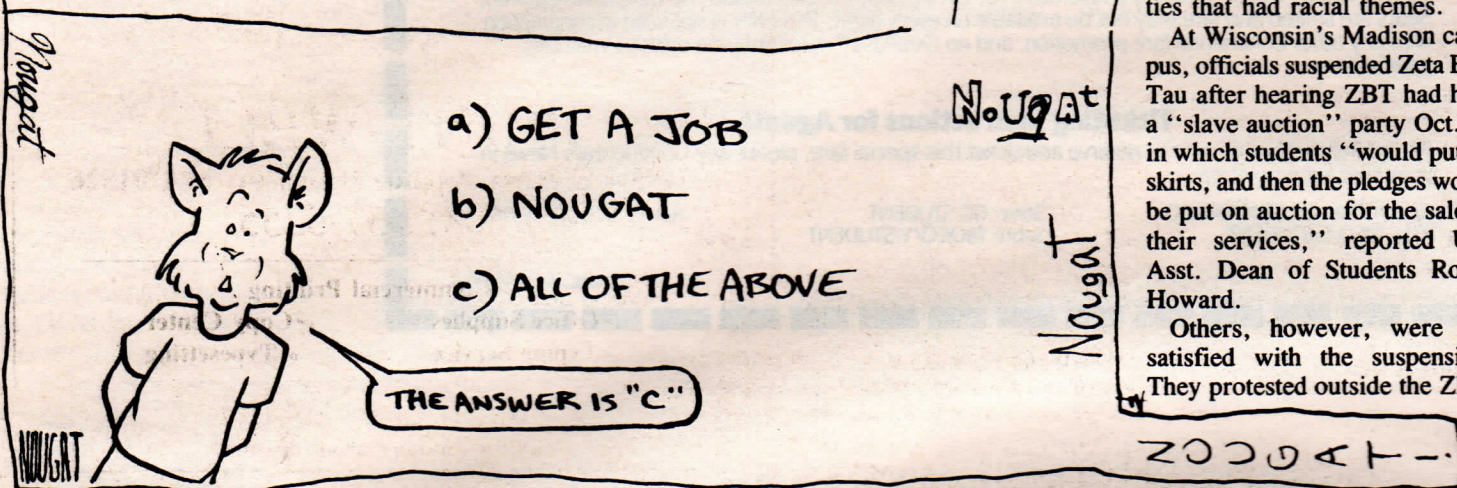 Nougat
a) GET A JOB
b) NOUGAT
c) ALL OF THE ABOVE
THE ANSWER IS "C"
NOUGAT
NOUGAt
Nougat
ties that had racial themes.
At Wisconsin's Madison ca
pus, officials suspended Zeta B
Tau after hearing ZBT had h
a "slave auction" party Oct.
in which students "would put
skirts, and then the pledges wo
be put on auction for the sale
their services," reported U
Asst. Dean of Students Ro
Howard.
Others, however, were
satisfied with the suspensi
They protested outside the Z
NOUGAT!